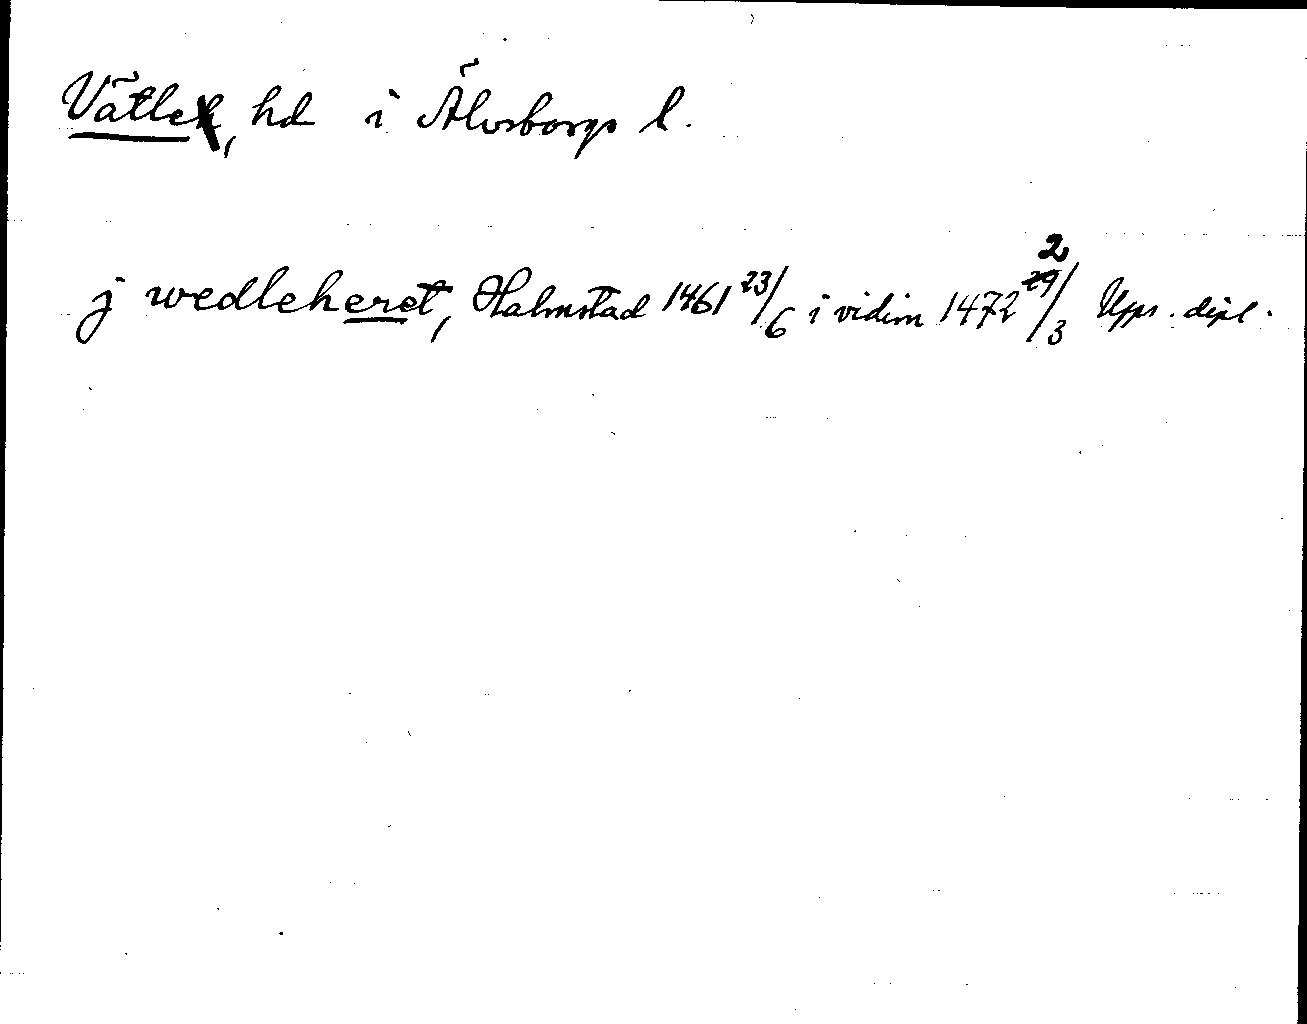 Vätle, hd i Älvsborgs l.
j wedleheret, Halmstad 1461 23/6 i vidim 1472 2/3 Ups. dipl.